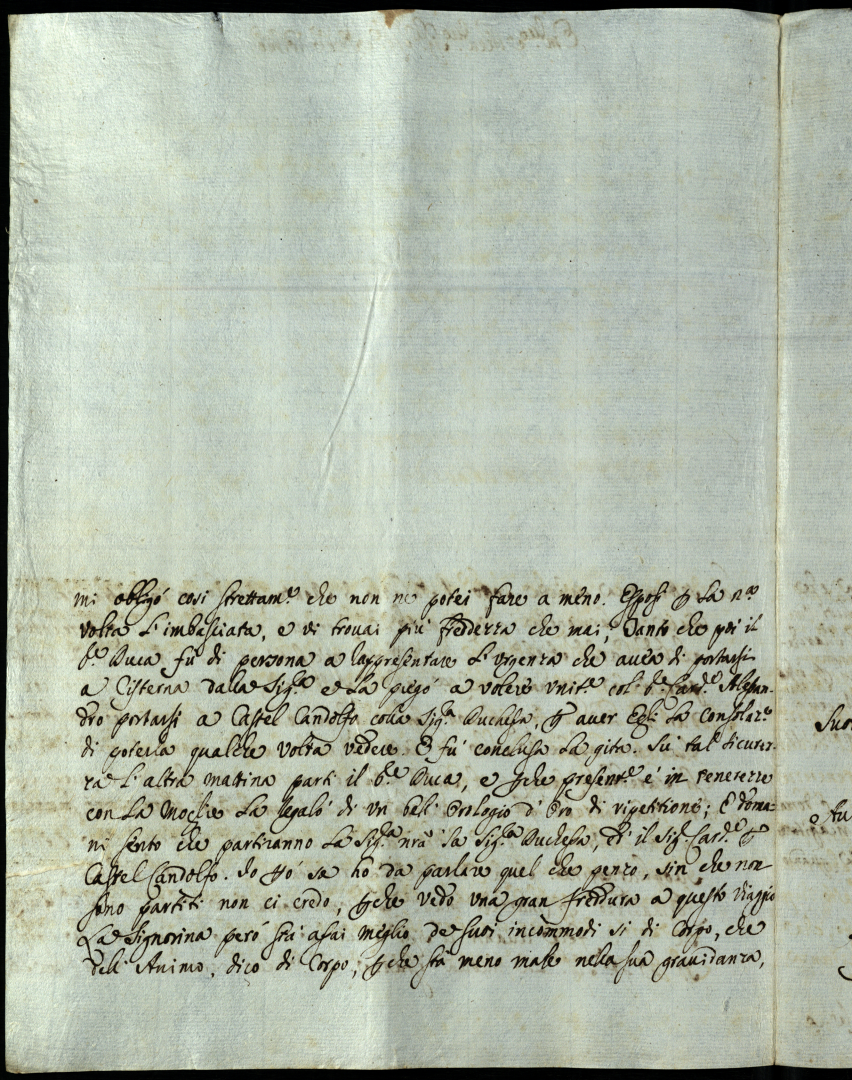 mi obligó cosi strettam.te che non ne potei fare a meno. Esposi p la n.a
volta l'imbasciata, e vi trovai più freddezza che mai, Tanto che poi il
S.e Duca fù di persona a rappresentare l'urgenza che avea di portarsi
a Cisterna dalla Sig.ra e la pregó a volere unit.e col S.e Card.e Alessan-
dro portarsi a Castel Candolfo colla Sig.ra Duchessa, p aver Egli la consolaz.e
di poterla qualche volta vedere. E fu' conclusa la gita. Su tal sicurez-
za l'altra mattina parti il S.e Duca, e pche present.e é in tenerezze
con la Moglie la regaló di un bell'Orologio d'Oro di ripetitione; E doma-
ni sento che partiranno la Sig.ra nrã la Sig.ra Duchessa, ed il Sig. Card.e p
Castel Candolfo. Io pó se ho da parlare quel che penzo, sin che non
sono partiti non ci credo, pche vedo una gran freddura a questo viaggio
La Signorina però stá assai meglio de suoi incommodi si di Corpo, che
dell'Animo, dico di Corpo, pche stá meno male nella sua gravidanza,